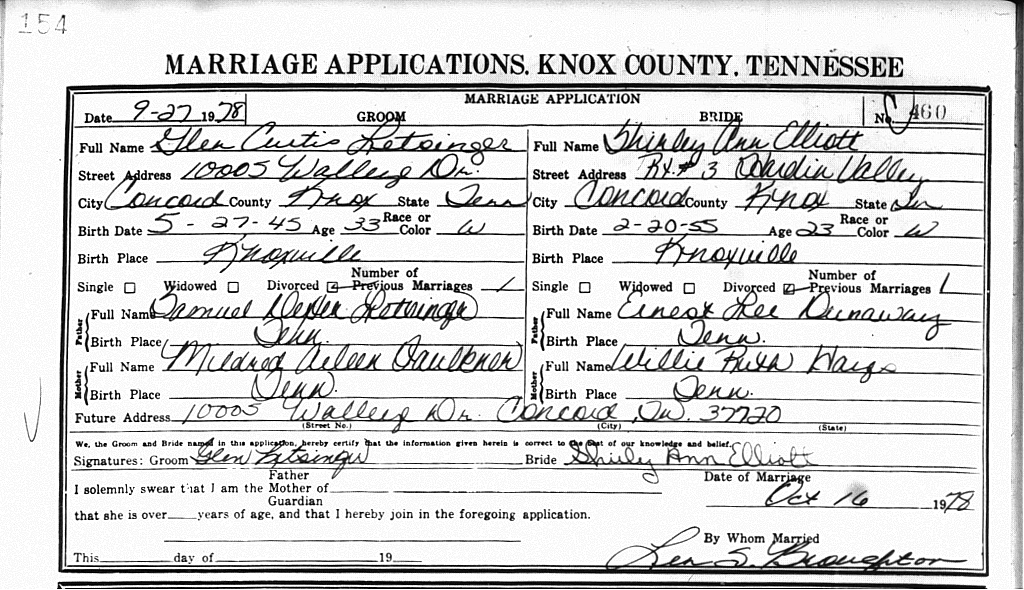 154
MARRIAGE APPLICATIONS, KNOX COUNTY, TENNESSEE
MARRIAGE APPLICATION
Date 9-27 1978 GROOM BRIDE No. 460
Full Name Glen Curtis Letsinger Full Name Shirley Ann Elliott
Street Address 10005 Walleig Dr. Street Address Rt. # 3 Hardin Valley
City Concord County Knox State Tenn City Concord County Knox State Tn
Birth Date 5-27-45 Age 33 Race or Color W Birth Date 2-20-55 Age 23 Race or Color W
Birth Place Knoxville Birth Place Knoxville
Single Widowed Divorced Number of Previous Marriages 1 Single Widowed Divorced Number of Previous Marriages 1
Father Full Name Samuel Letsinger Father Full Name Ernest Lee Dunaway
Birth Place Tenn. Birth Place Tenn.
Mother Full Name Mildred Aileen Faulkner Mother Full Name Willie Ruth Hays
Birth Place Tenn. Birth Place Tenn.
Future Address 10005 Walleig Dr. Concord, Tn. 37720
(Street No.) (City) (State)
We, the Groom and Bride named in this application, hereby certify that the information given herein is correct to the best of our knowledge and belief.
Signatures: Groom Glen Letsinger Bride Shirly Ann Elliott
Father Date of Marriage
I solemnly swear that I am the Mother of Oct 16 1978
Guardian
that she is over years of age, and that I hereby join in the foregoing application.
By Whom Married
This day of 19 S. Broughton